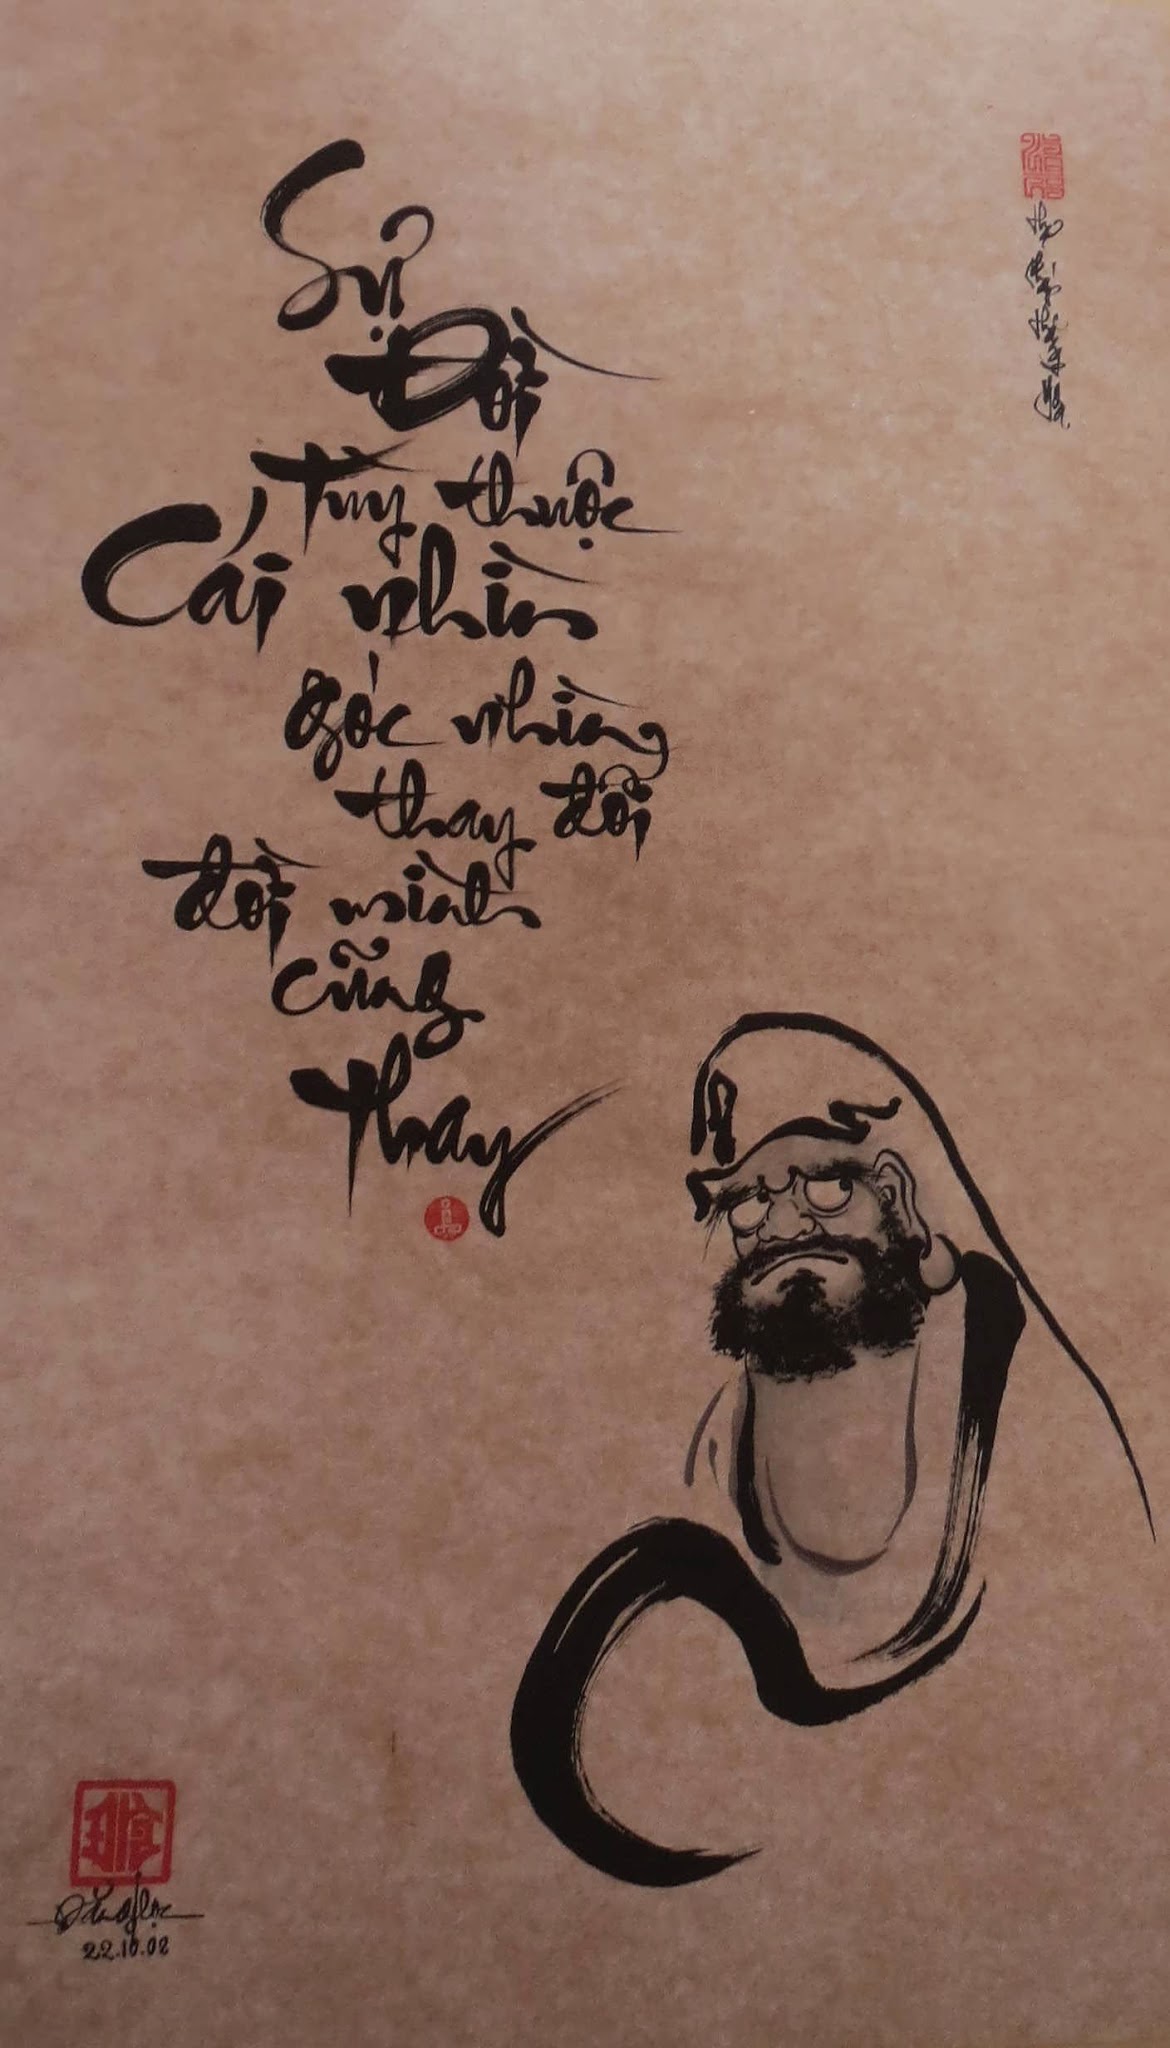 Sự
Đời
Tùy thuộc
Cái nhìn
góc nhìn
thay đổi
đời mình
cũng
thay
22.10.08